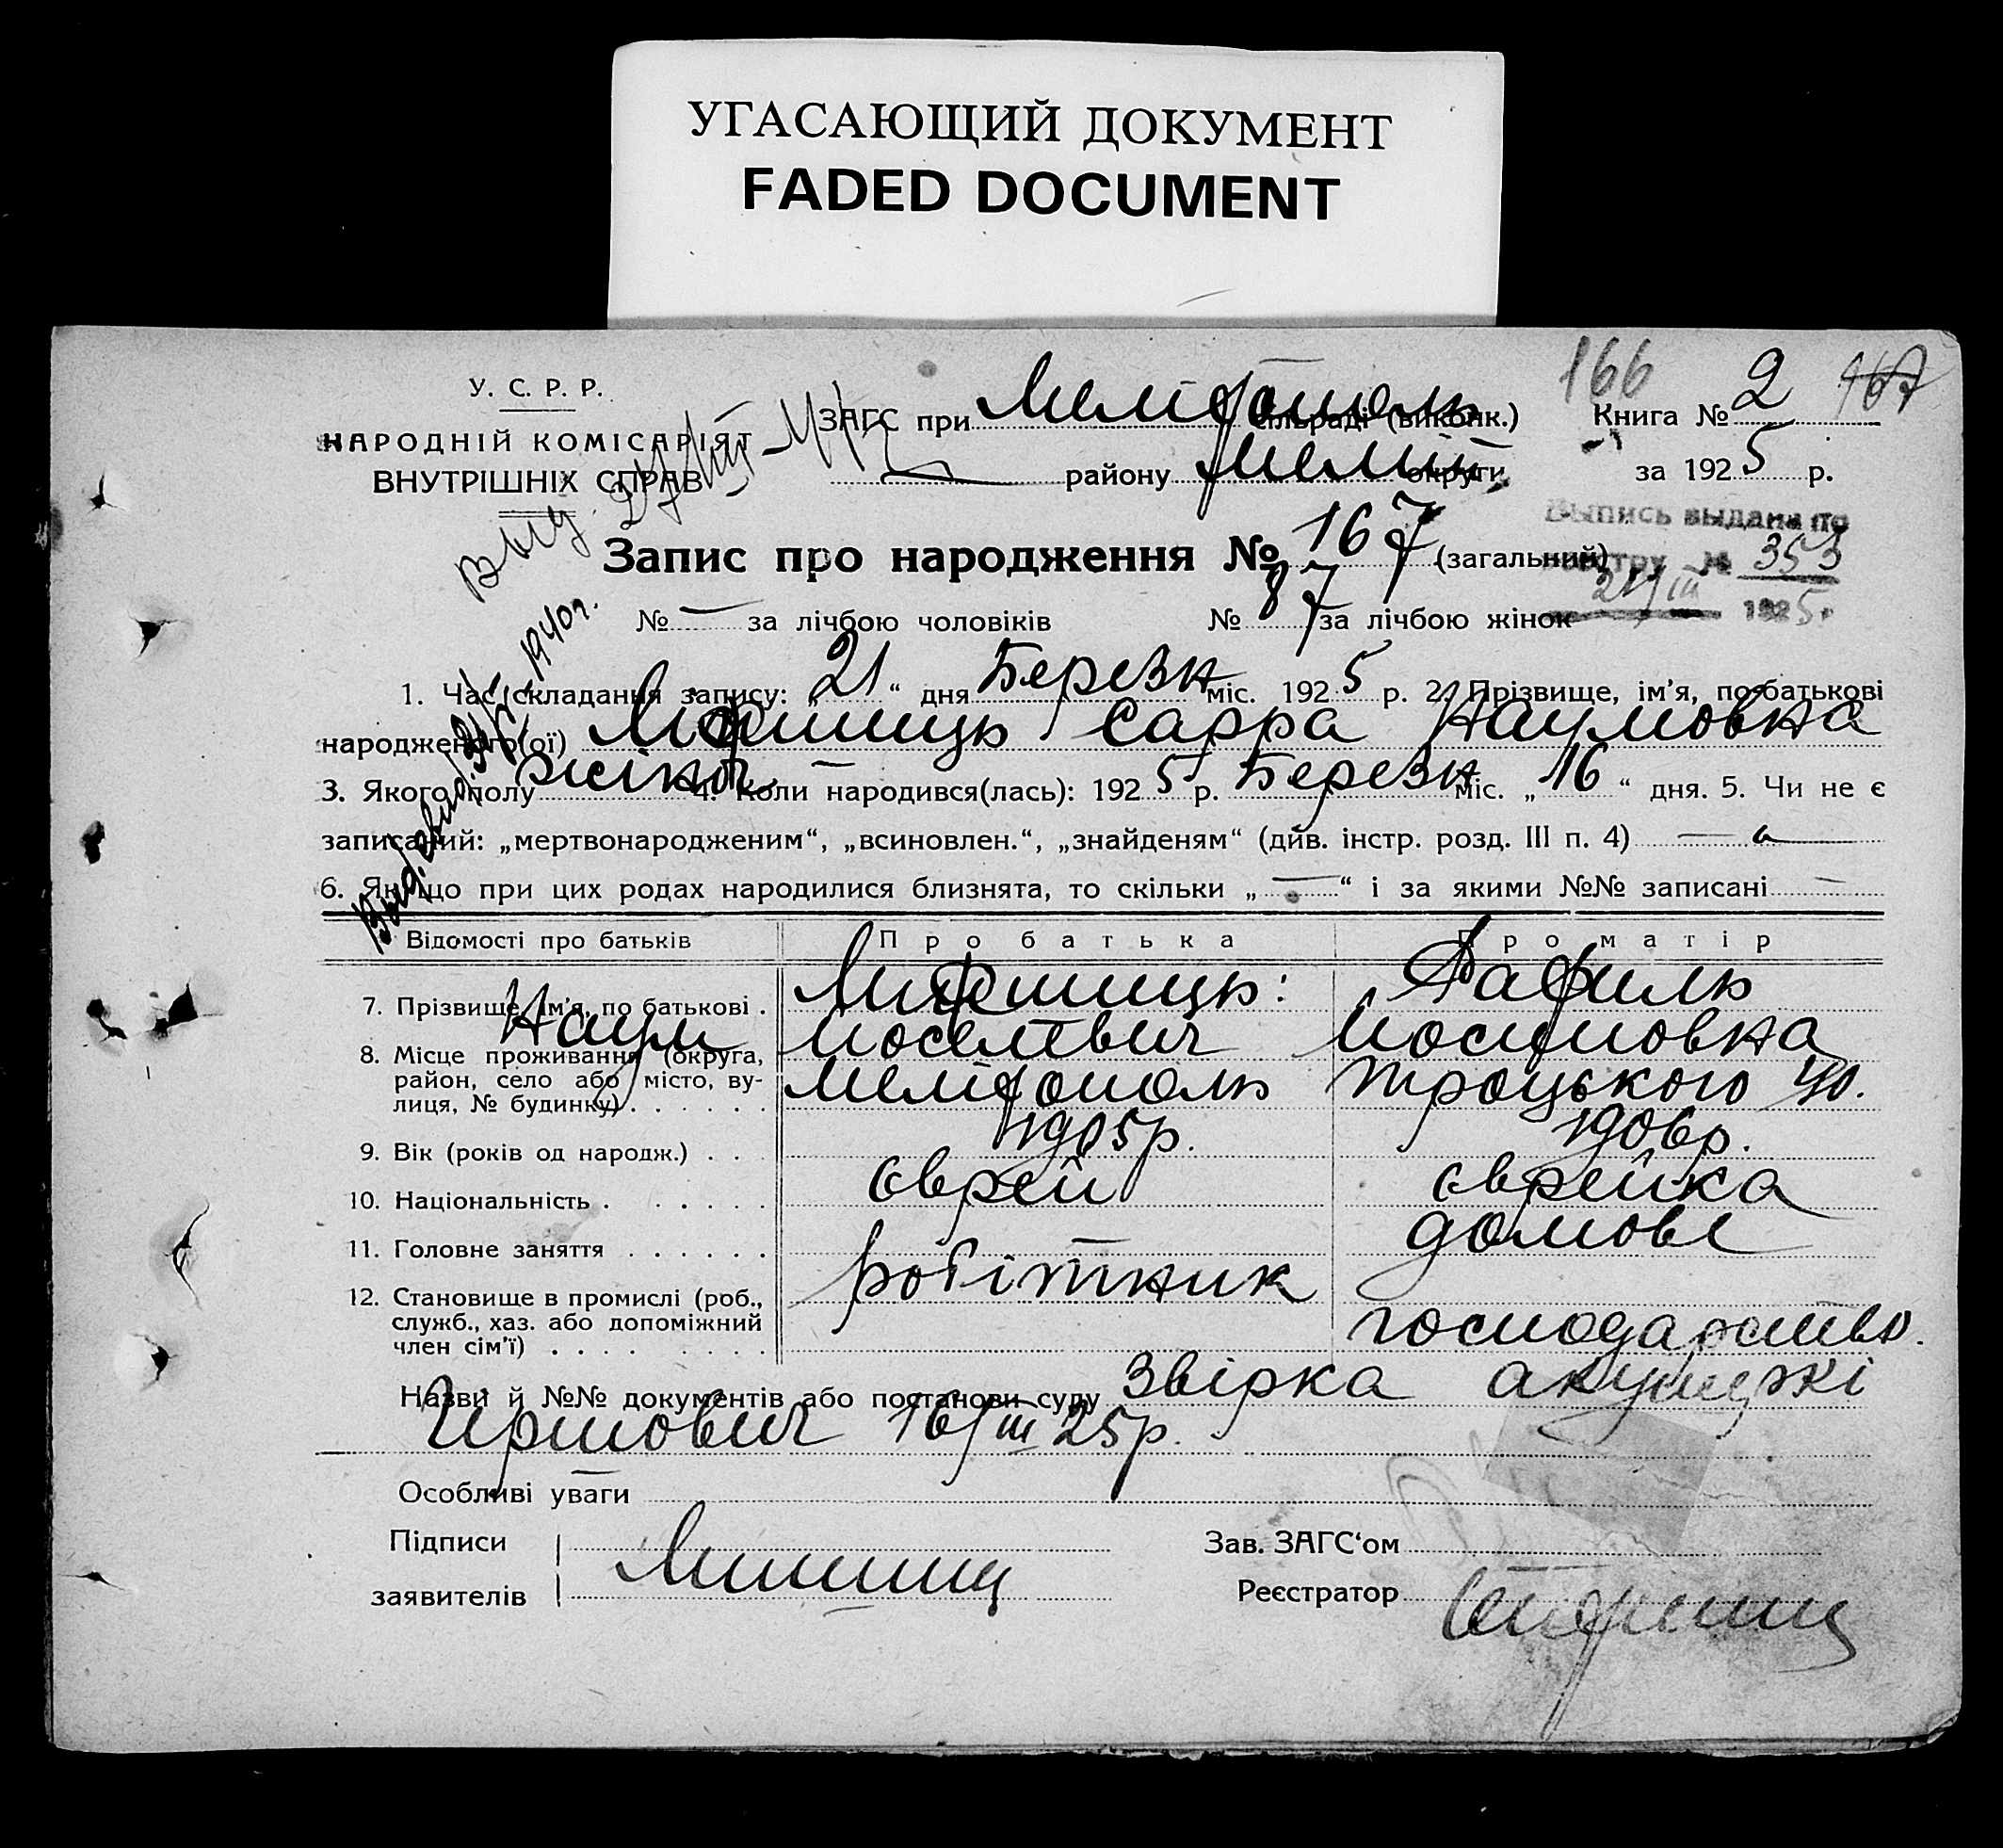 УГАСАЮЩИЙ ДОКУМЕНТ
FADED DOCUMENT
166 167
У. С. Р. Р.
НАРОДНІЙ КОМІСАРІЯТ
ВНУТРІШНІХ СПРАВ
ЗАГС при Мелітополь сільраді (виконк.) Книга № 2
району Меліт округи за 1925 р.
Выпись выдана по
реестру № 353
24/III 1925 г.
Запис про народження № 167 (загальний)
№ — за лічбою чоловіків № 87 за лічбою жінок
1. Час складання запису: „21“ дня Березн міс. 1925 р. 2. Прізвище, ім’я, по батькові
народженого(ої) Сарра Наумовна
3. Якого полу жіноч. 4. Коли народився(лась): 1925 р. Березн міс. „16“ дня. 5. Чи не є
записаний: „мертвонародженим“, „всиновлен.“, „знайденям“ (див. інстр. розд. III п. 4) —
6. Якщо при цих родах народилися близнята, то скільки „—“ і за якими №№ записані —
1940 г.
Відомості про батьків Про батька Про матір
7. Прізвище, ім’я, по батькові . Наум Моселевич Рафиль Йосиповна
8. Місце проживання (округа, район, село або місто, вулиця, № будинку) . . . . . . Мелітополь Троцького 40.
9. Вік (років од народж.) . . . 1905р. 1906р.
10. Національність . . . . . . єврей єврейка
11. Головне заняття . . . . . . робітник домове господарство.
12. Становище в промислі (роб., служб., хаз. або допоміжний член сім’ї) . . . .
Назви й №№ документів або постанови суду Звірка акушеркі
Гіршович 16/III 25р.
Особливі уваги
Підписи
заявителів
Зав. ЗАГС‘ом
Реєстратор